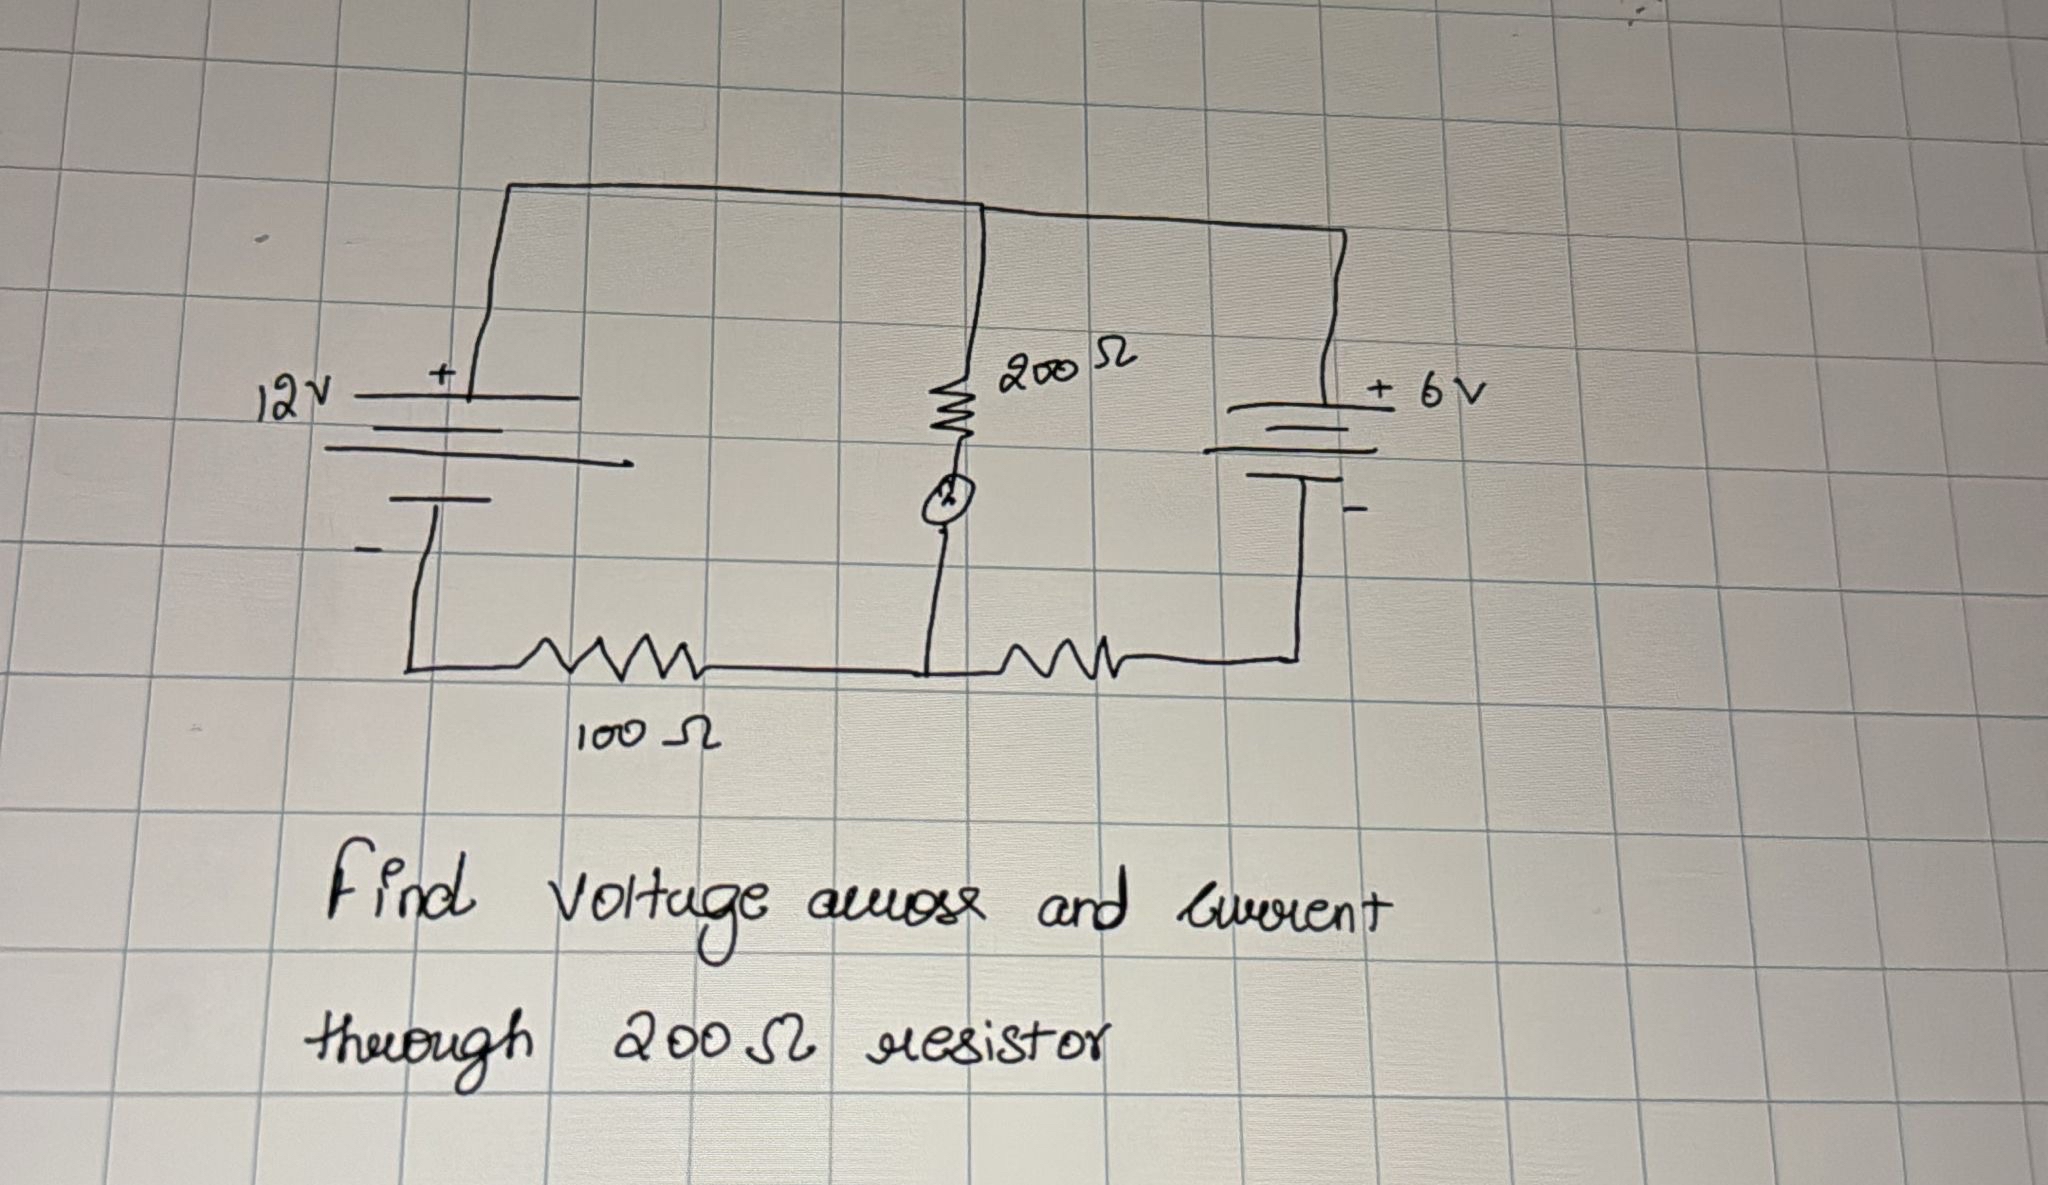 200 Ω
12 V
+
+ 6 V
2
-
-
100 Ω
Find voltage across and current
through 200 Ω resistor